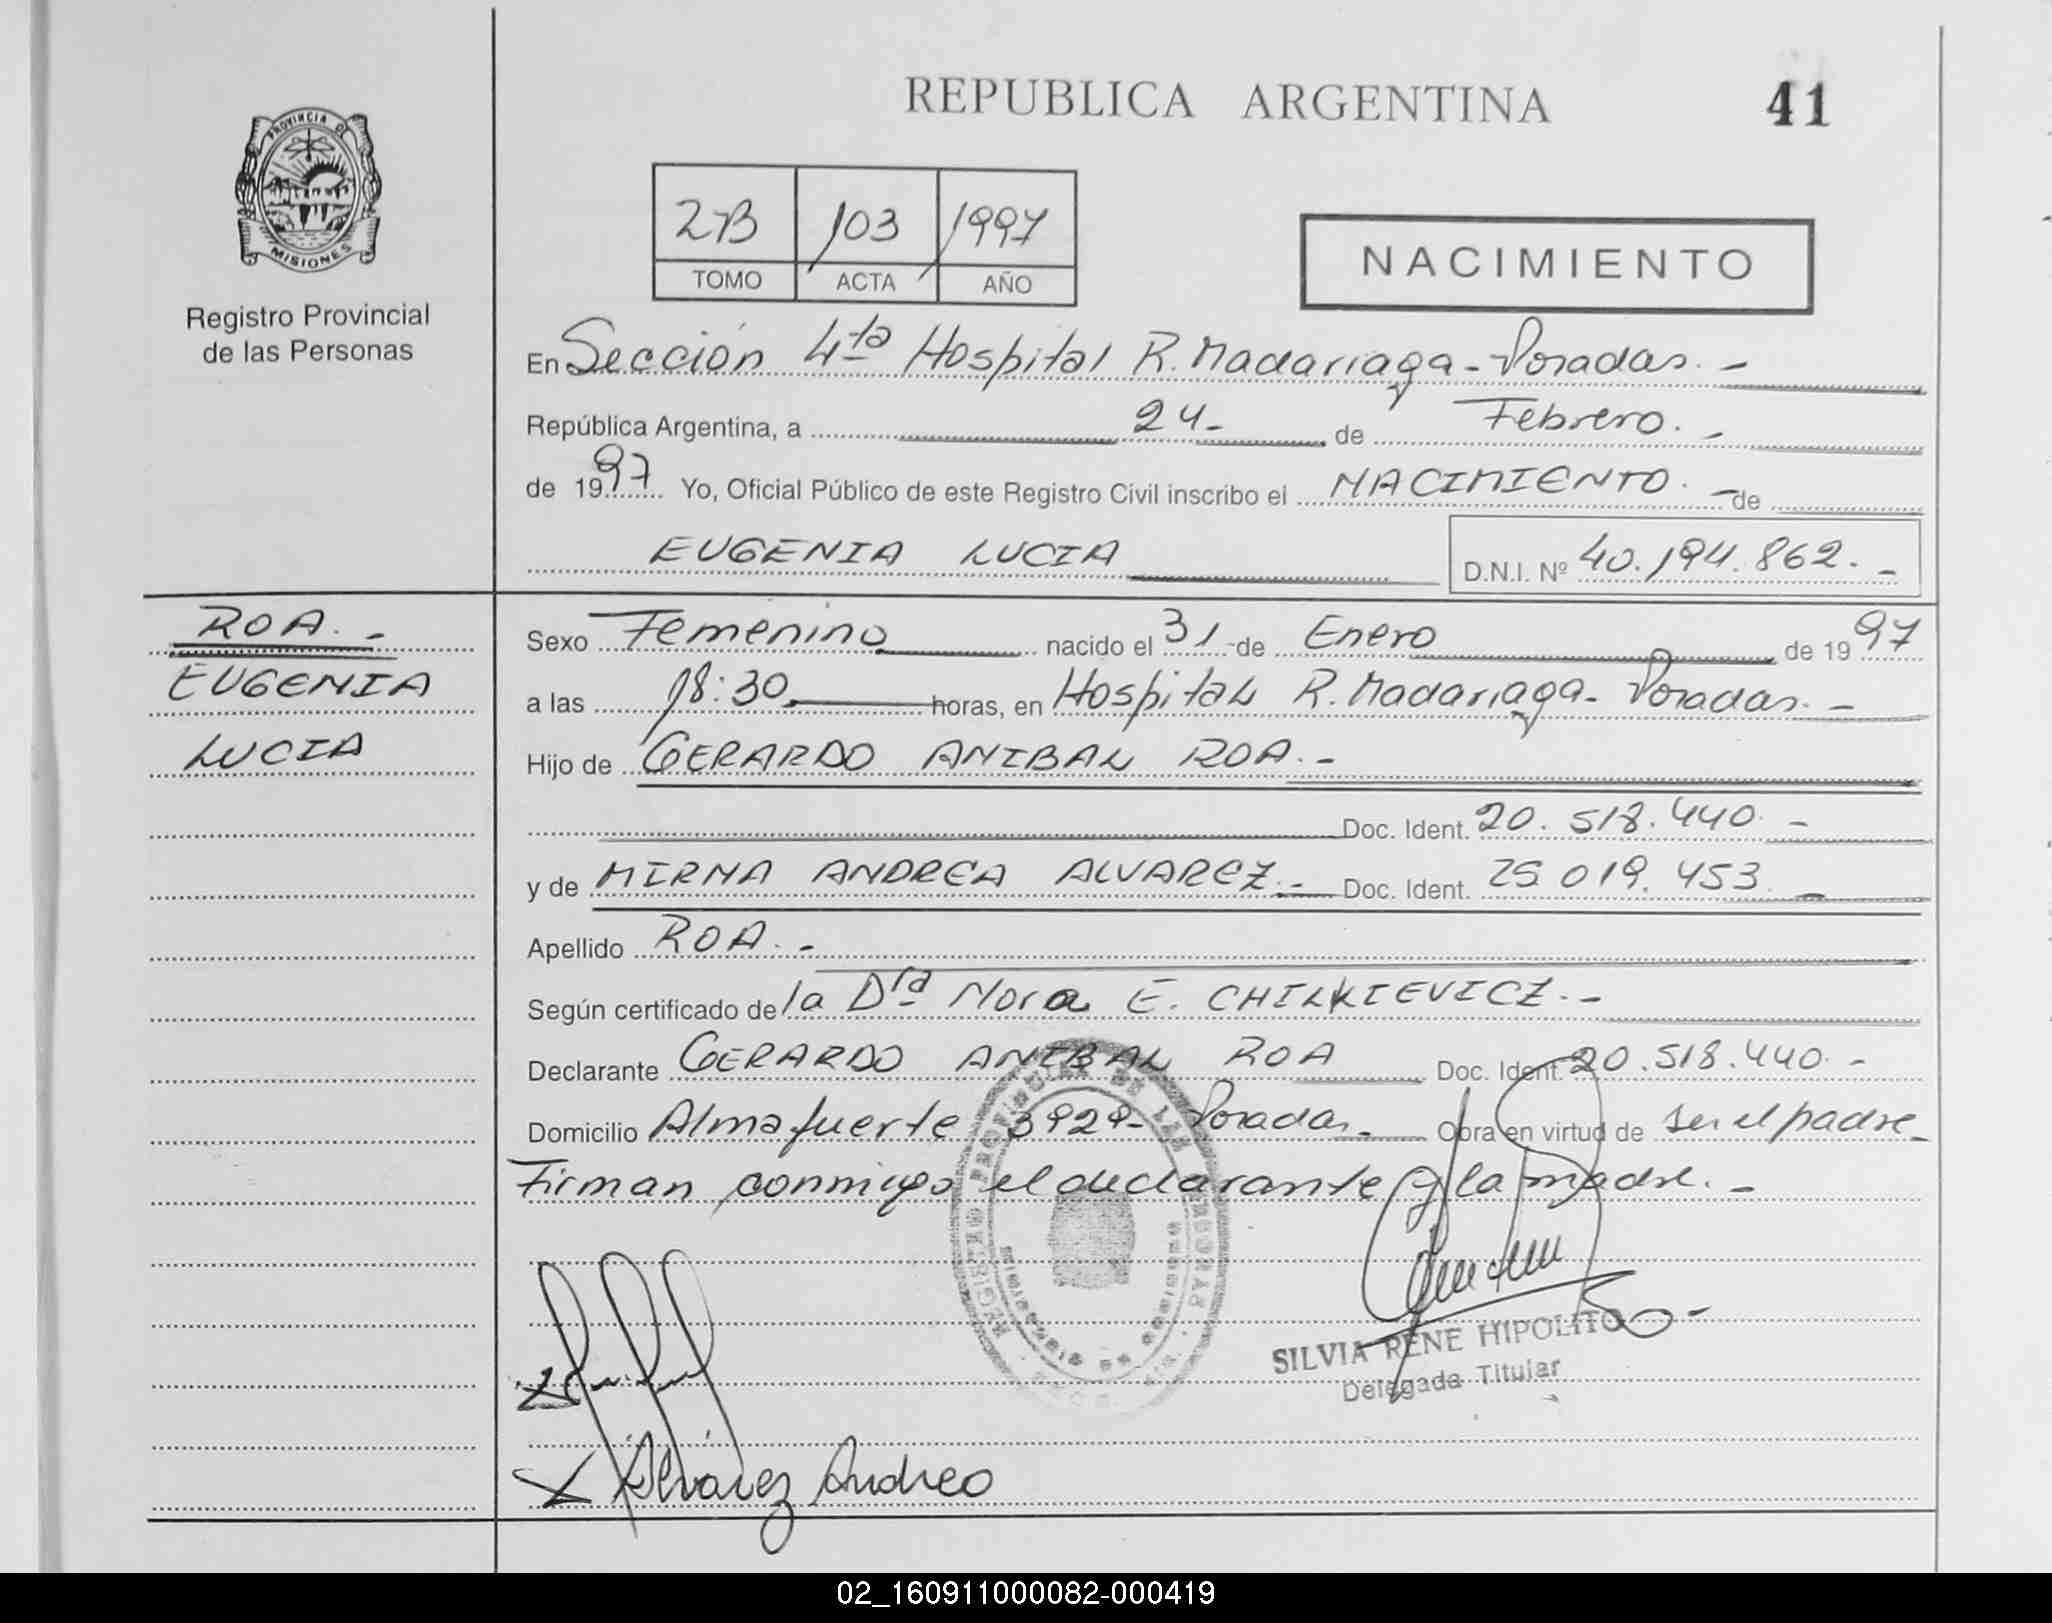 PROVINCIA DE
MISIONES
Registro Provincial
de las Personas
REPUBLICA ARGENTINA
41
2-B 103 1997
TOMO ACTA AÑO
NACIMIENTO
En Sección 4ta Hospital R. Madariaga - Posadas. -
República Argentina, a 24 - de Febrero. -
de 1997 Yo, Oficial Público de este Registro Civil inscribo el NACIMIENTO. - de
EUGENIA LUCIA D.N.I. Nº 40.194.862. -
ROA. -
EUGENIA
LUCIA
Sexo Femenino nacido el 31 - de Enero de 1997
a las 18:30 horas, en Hospital R. Madariaga - Posadas. -
Hijo de GERARDO ANIBAL ROA. -
Doc. Ident. 20.518.440. -
y de MIRNA ANDREA ALVAREZ. - Doc. Ident. 25.019.453. -
Apellido ROA. -
Según certificado de la Dra Nora E. CHILKIEVICZ. -
Declarante GERARDO ANIBAL ROA Doc. Ident. 20.518.440. -
Domicilio Almafuerte 3929 - Posadas. - Obra en virtud de ser el padre -
Firman conmigo el declarante y la madre. -
REGISTRO PROVINCIAL DE LAS PERSONAS
SILVIA RENE HIPOLITO
Delegada Titular
Alvarez Andrea
02_160911000082-000419